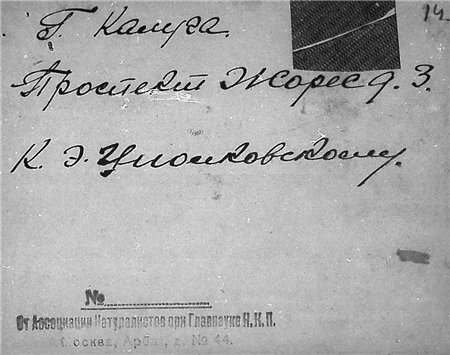 14
Г. Калуга.
Проспект Жорес д. 3.
К. Э. Циолковскому.
№
От Ассоциации Натуралистов при Главнауке Н.К.П.
Москва, Арбат, д. № 44.